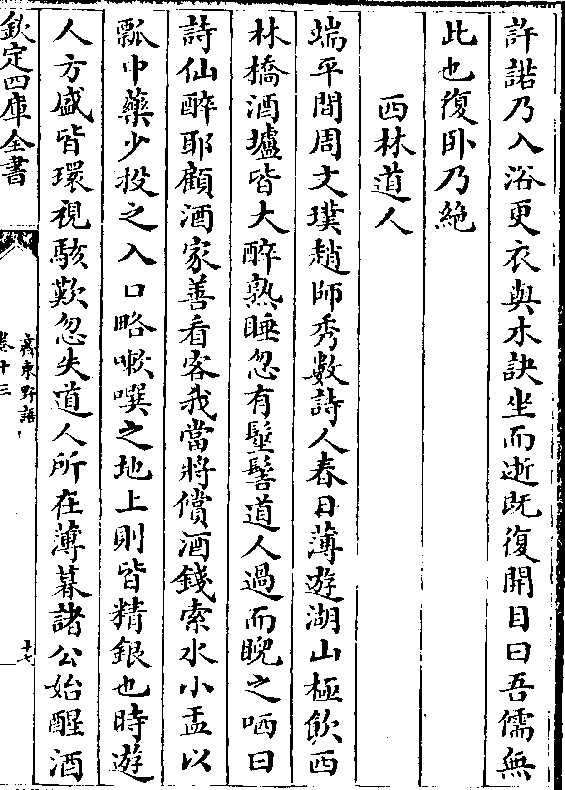 許諾乃入浴更衣與水訣坐而逝既復開目曰吾儒無
此也復卧乃絶
西林道人
端平間周文璞趙師秀數詩人春日薄遊湖山極飲西
林橋酒壚皆大醉熟睡忽有髽髻道人過而睨之哂曰
詩仙醉耶顧酒家善看客我當將償酒錢索水小盂以
瓢中藥少投之入口略嗽噀之地上則皆精銀也時遊
人方盛皆環視駭歎忽失道人所在薄暮諸公始醒酒
欽定四庫全書
齊東野語
卷十三
十七